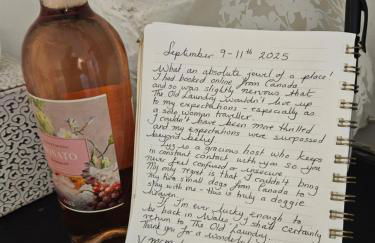 NATO
September 9-11th 2025
What an absolute jewel of a place!
I had booked online from Canada
and so was slightly nervous that
The Old Laundry wouldn't live up
to my expectations - especially as
a solo woman traveller.
I couldn't have been more thrilled
and my expectations were surpassed
beyond belief!
is a gracious host who keeps
in constant contact with you so you
never feel confused or insecure
My only regret is that I couldn't bring
my two small dogs from Canada to
stay with me - this is truly a doggie
heaven.
If I'm ever lucky enough to
be back in Wales I shall certainly
return to The Old Laundry.
Thank you for a wonderful